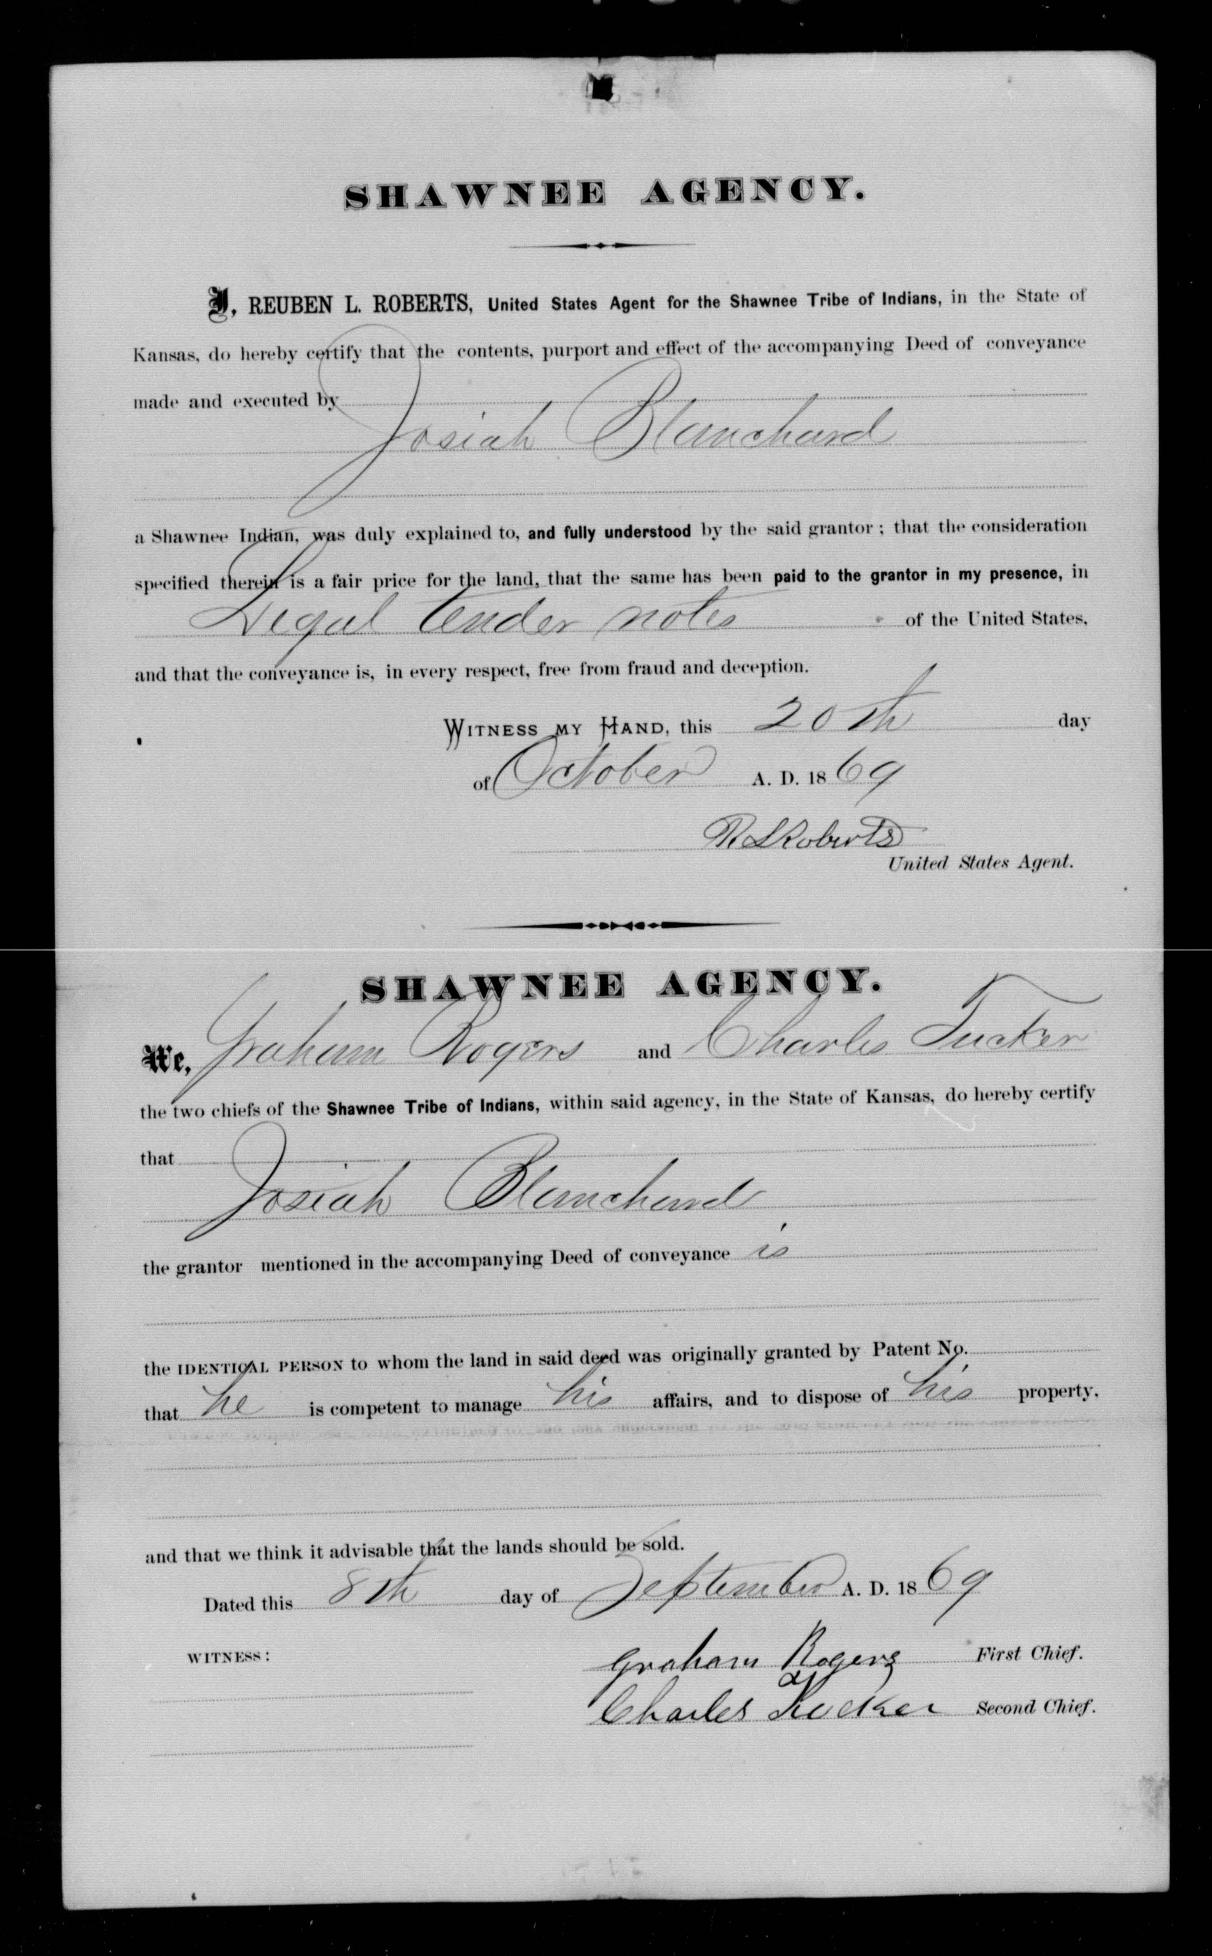 SHAWNEE AGENCY.
I, REUBEN L. ROBERTS, United States Agent for the Shawnee Tribe of Indians, in the State of
Kansas, do hereby certify that the contents, purport and effect of the accompanying Deed of conveyance
made and executed by
Josiah Blanchard
a Shawnee Indian, was duly explained to, and fully understood by the said grantor ; that the consideration
specified therein is a fair price for the land, that the same has been paid to the grantor in my presence, in
Legal tender notes of the United States,
and that the conveyance is, in every respect, free from fraud and deception.
WITNESS MY HAND, this 20th day
of October A. D. 1869
R L Roberts
United States Agent.
SHAWNEE AGENCY.
We, Graham Rogers and Charles Tucker
the two chiefs of the Shawnee Tribe of Indians, within said agency, in the State of Kansas, do hereby certify
that
Josiah Blanchard
the grantor mentioned in the accompanying Deed of conveyance is
the IDENTICAL PERSON to whom the land in said deed was originally granted by Patent No.
that he is competent to manage his affairs, and to dispose of his property,
and that we think it advisable that the lands should be sold.
Dated this 8th day of September A. D. 1869
WITNESS: Graham Rogers First Chief.
Charles Tucker Second Chief.